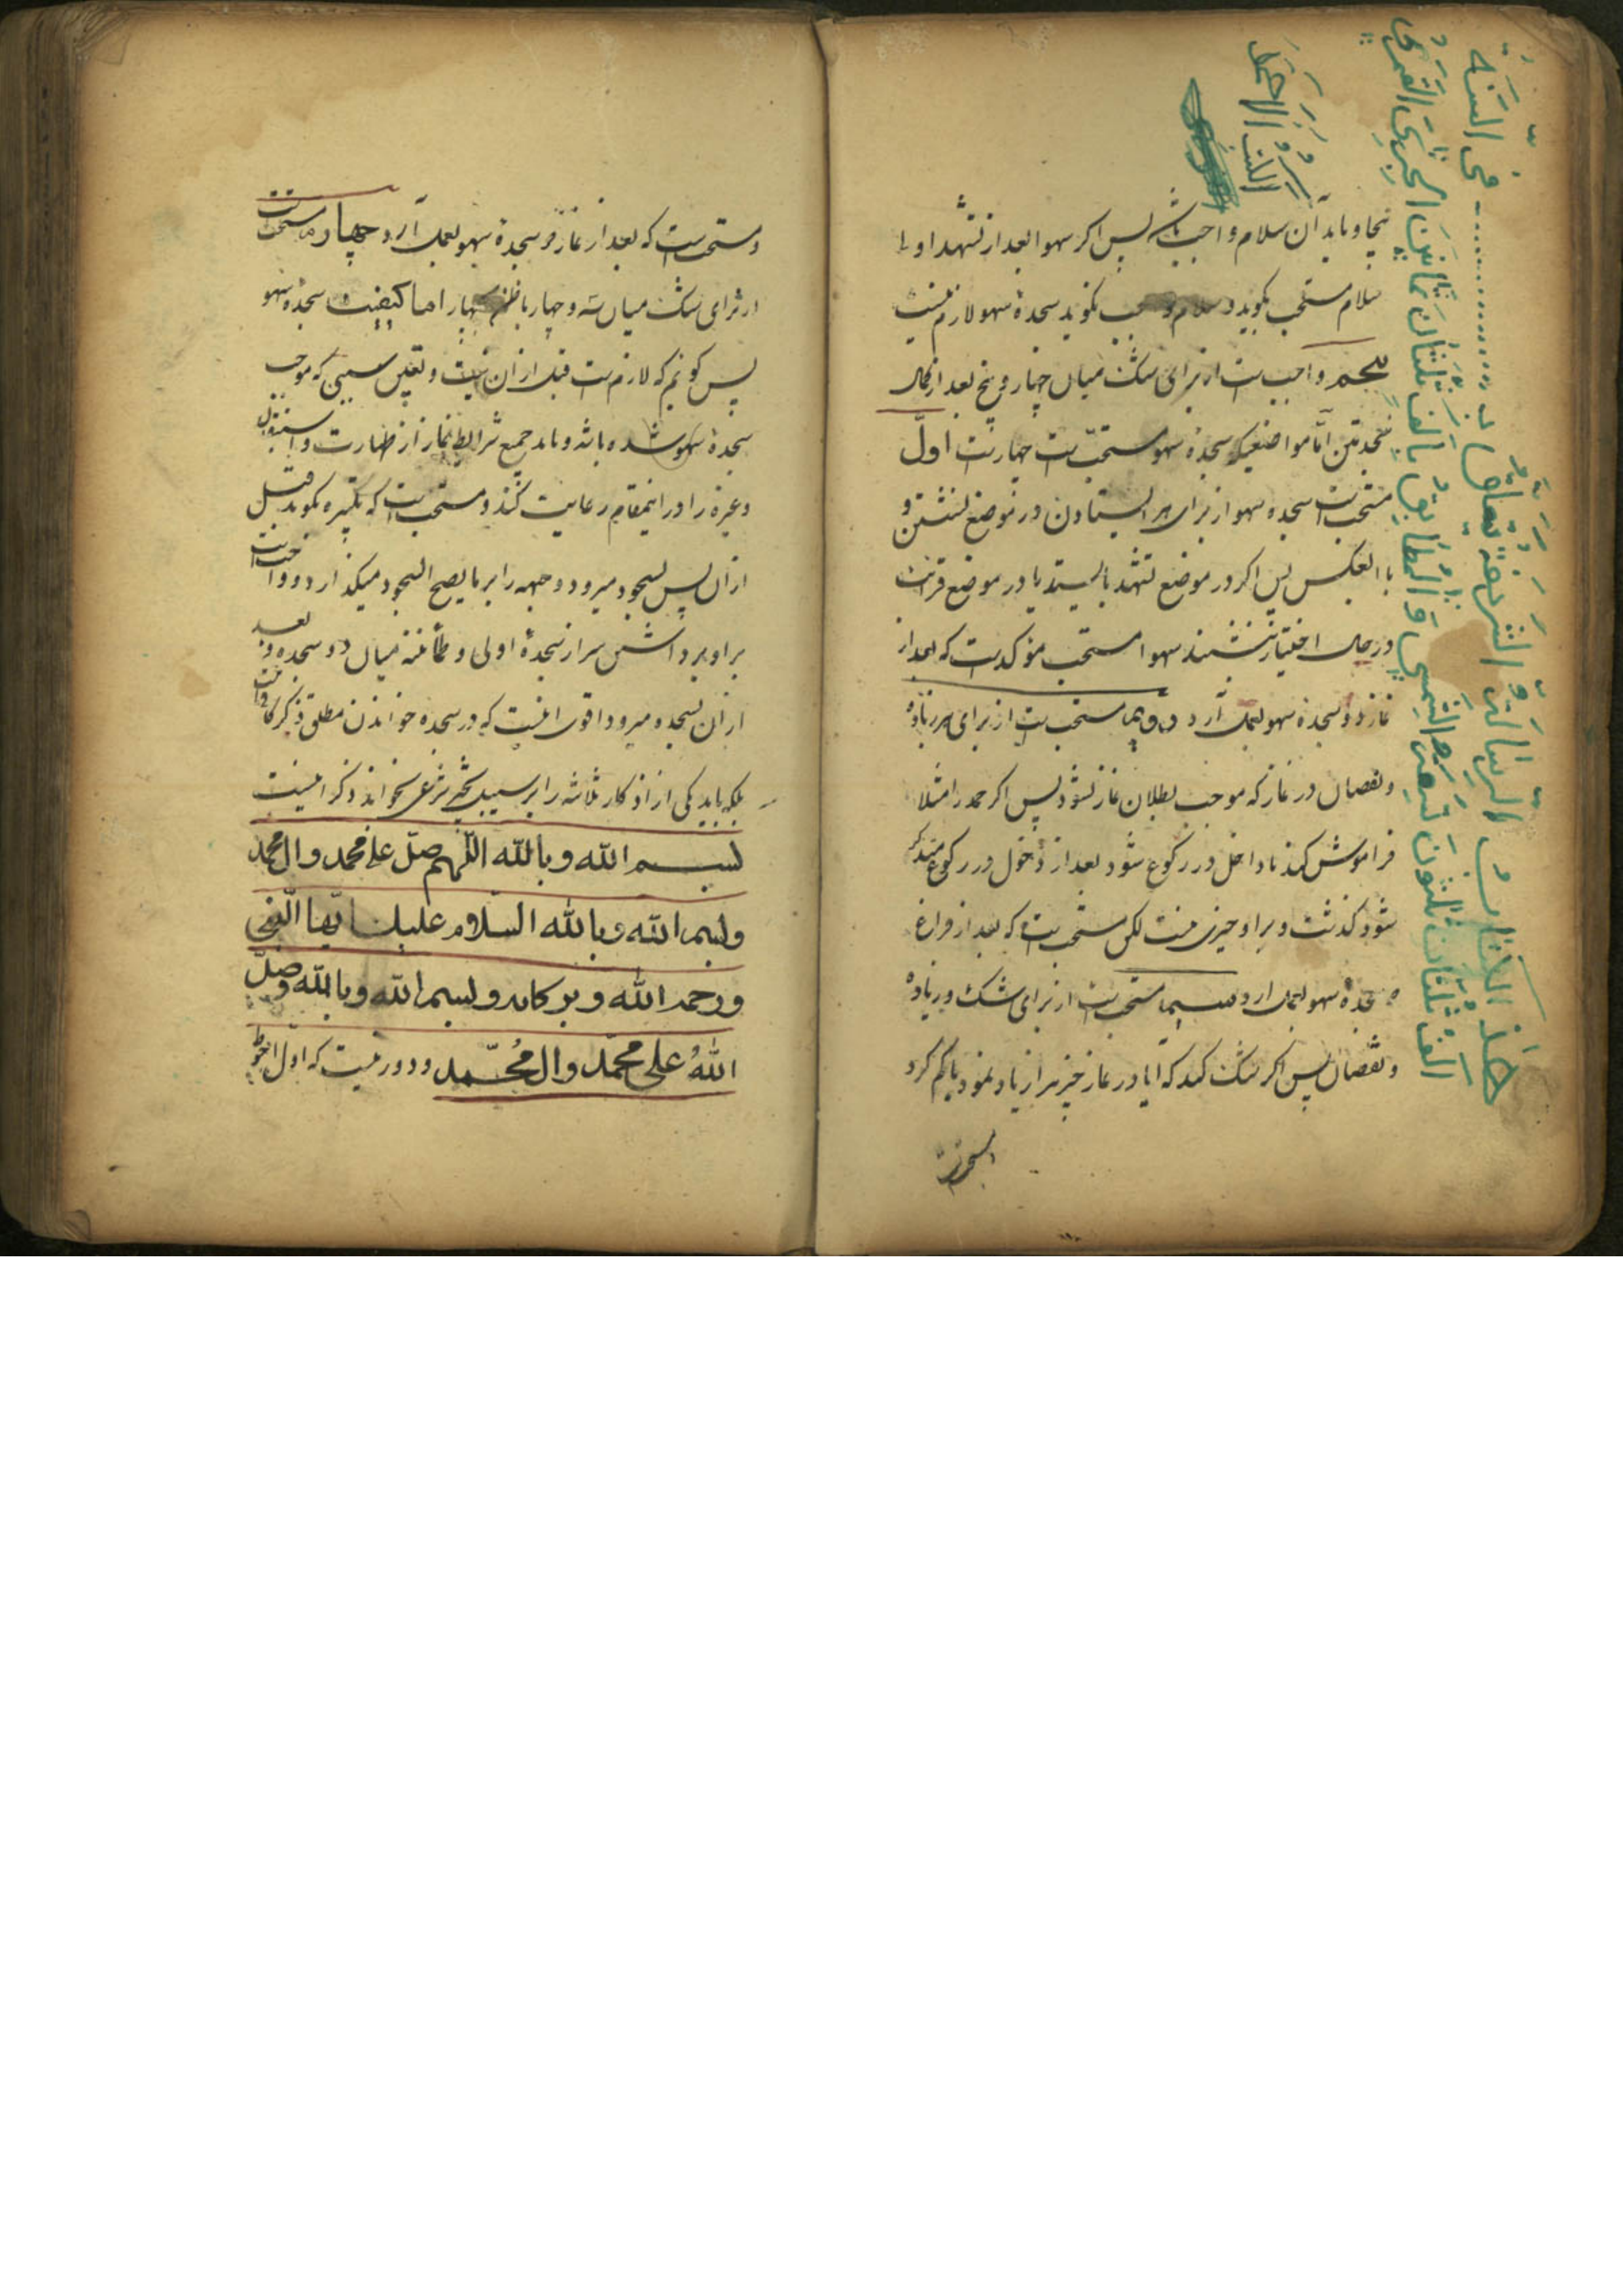 بیجا و باید آن سلام واجب باشد پس اگر سهوا بعد از تشهد اول
سلام مستحب بگوید و سلام واجب نگوید سجدهٔ سهو لازم نیست
پنجم واجبست از برای شک میان چهار و پنج بعد از اکمال
سجدتین امّا مواضعیکه سجدهٔ سهو مستحبّ است چهار است اول
مستحب است سجده سهو از برای هر ایستادن در موضع نشستن و
با العکس پس اگر در موضع تشهد بایستد یا در موضع قرائت
در حال اختیار بنشیند سهوا مستحب مؤکد است که بعد از
نماز دو سجدهٔ سهو بعمل آرد دویم مستحب است از برای هر زیاده
و نقصان در نماز که موجب بطلان نماز نشود پس اگر حمد را مثلا
فراموش کند تا داخل در رکوع شود بعد از دخول در رکوع متذکر
شود گذشت و بر او چیزی نیست لکن مستحب است که بعد از فراغ
سجدهٔ سهو بعمل ارد سیما مستحب است از برای شک در زیاده
و نقصان پس اگر شک کند که ایا در نماز چیزیرا زیاد نمود یا کم کرد
هذا الكتاب الرسالة الشريفة يتعلق
في السنة
الف ثلثان ثلثون تسعين الشمسي والمطابق بالف ثلثان ثمانين الهجري القمري
و مستحب است که بعد از نماز دو سجدهٔ سهو بعمل آرد چهارم مستحب است
از برای شک میان سه و چهار با ظنّ چهار اما کیفیت سجدهٔ سهو
پس گوئیم که لازم است قبل از آن نیت و تعیین سببی که موجب
سجدهٔ سهو شده باشد و باید جمیع شرایط نماز از طهارت و استقبال
و غیره را در اینمقام رعایت کند و مستحب است که تکبیره بگوید قبل
از آن پس بسجود میرود و جبهه را بر ما یصح السجود میگذارد و واجب است
بر او برداشتن سر از سجدهٔ اولی و طمأنینه میان دو سجده و بعد
از آن بسجده میرود و اقوی اینست که در سجده خواندن مطلق ذکر کافی است
بلکه باید یکی از اذکار ثلاثه را بر سبیل تخییر شرعی بخواند ذکر اینست
بسم الله وبالله اللّهم صلّ على محمد وال محمد
وبسم الله وبالله السّلام عليك ايّها النّبي
ورحمة الله وبركاته وبسم الله وبالله وصلّ
اللهُ على محمّد وال مُحمّد و دور نیست که اول احوط